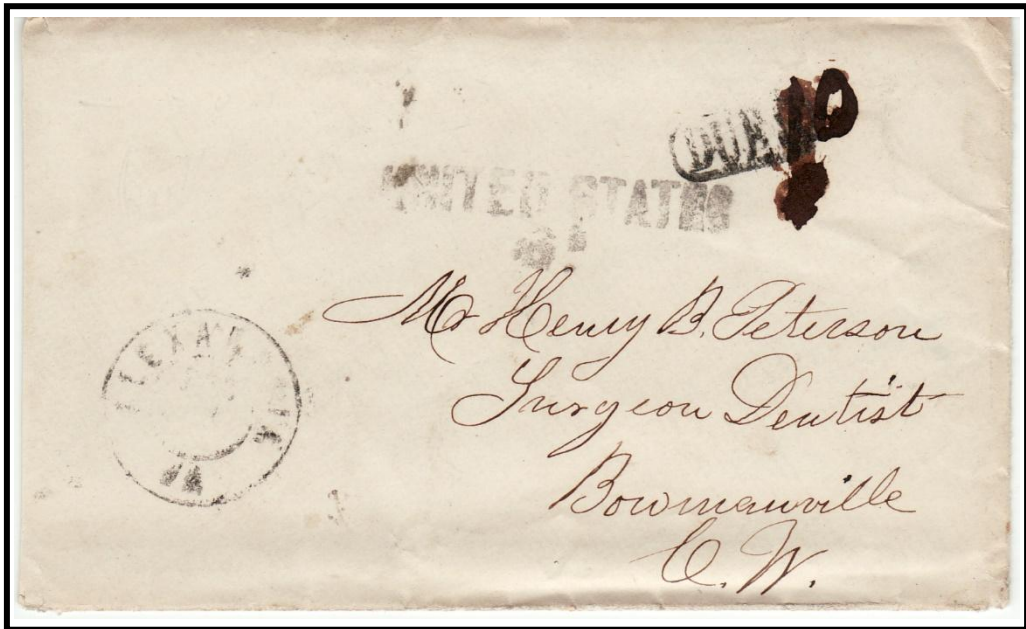 DUE 10
UNITED STATES
ALEXANDRIA
VA
Mr Henry B. Peterson
Surgeon Dentist
Bowmanville
C. W.